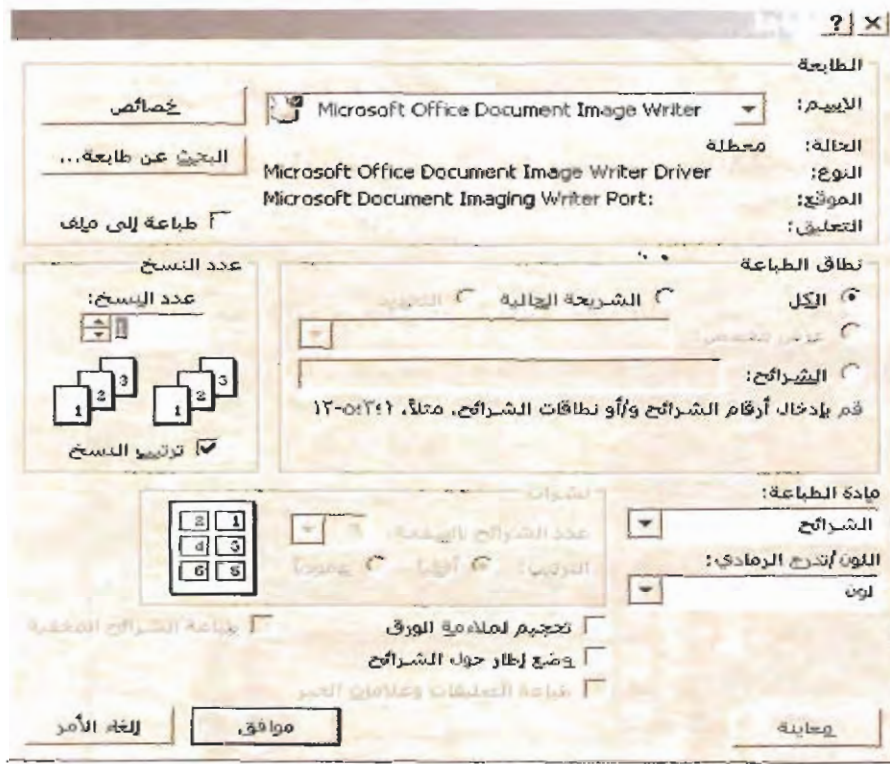 الطابعة
الاسم: Microsoft Office Document Image Writer خصائص
الحالة: معطلة
النوع: Microsoft Office Document Image Writer Driver البحث عن طابعة...
الموقع: Microsoft Document Imaging Writer Port:
التعليق: طباعة إلى ملف
نطاق الطباعة
الكل الشريحة الحالية التحديد
عرض مخصص:
الشرائح:
قم بإدخال أرقام الشرائح و/أو نطاقات الشرائح. مثلاً، ١؛٣؛٥-١٢
عدد النسخ
عدد النسخ:
1
1 2 3 1 2 3
ترتيب النسخ
مادة الطباعة:
الشرائح
اللون/تدرج الرمادي:
لون
نشرات
عدد الشرائح بالصفحة: 6
الترتيب: أفقياً عمودياً
2 1
4 3
6 5
تحجيم لملاءمة الورق طباعة الشرائح المخفية
وضع إطار حول الشرائح
طباعة التعليقات وعلامات الحبر
معاينة موافق إلغاء الأمر